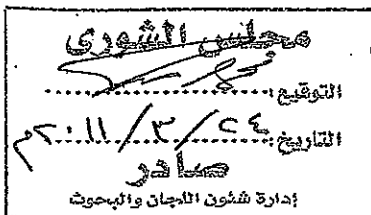 مجلس الشورى
التوقيع:
التاريخ: ٢٤/٣/٢٠١١م
صادر
إدارة شئون اللجان والبحوث